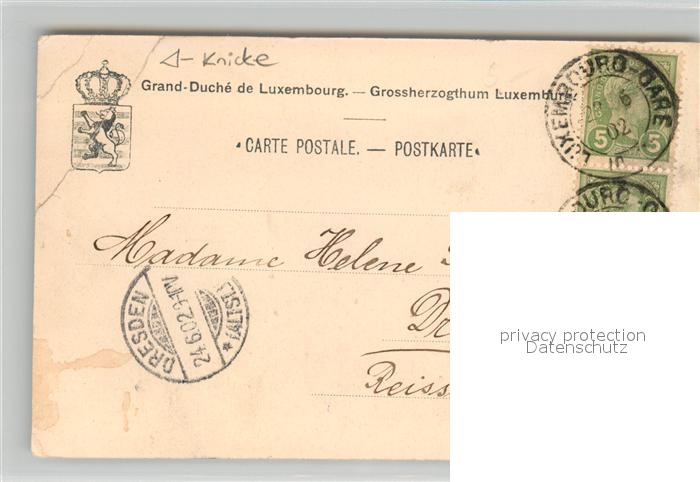 △- Knicke
Grand-Duché de Luxembourg. — Grossherzogthum Luxemburg.
CARTE POSTALE. — POSTKARTE
LUXEMBOURG-GARE
02
5 5
Madame Helene
DRESDEN
24.6.02.9-10V.
*(ALTST.)
Dr
Reiss
privacy protection
Datenschutz